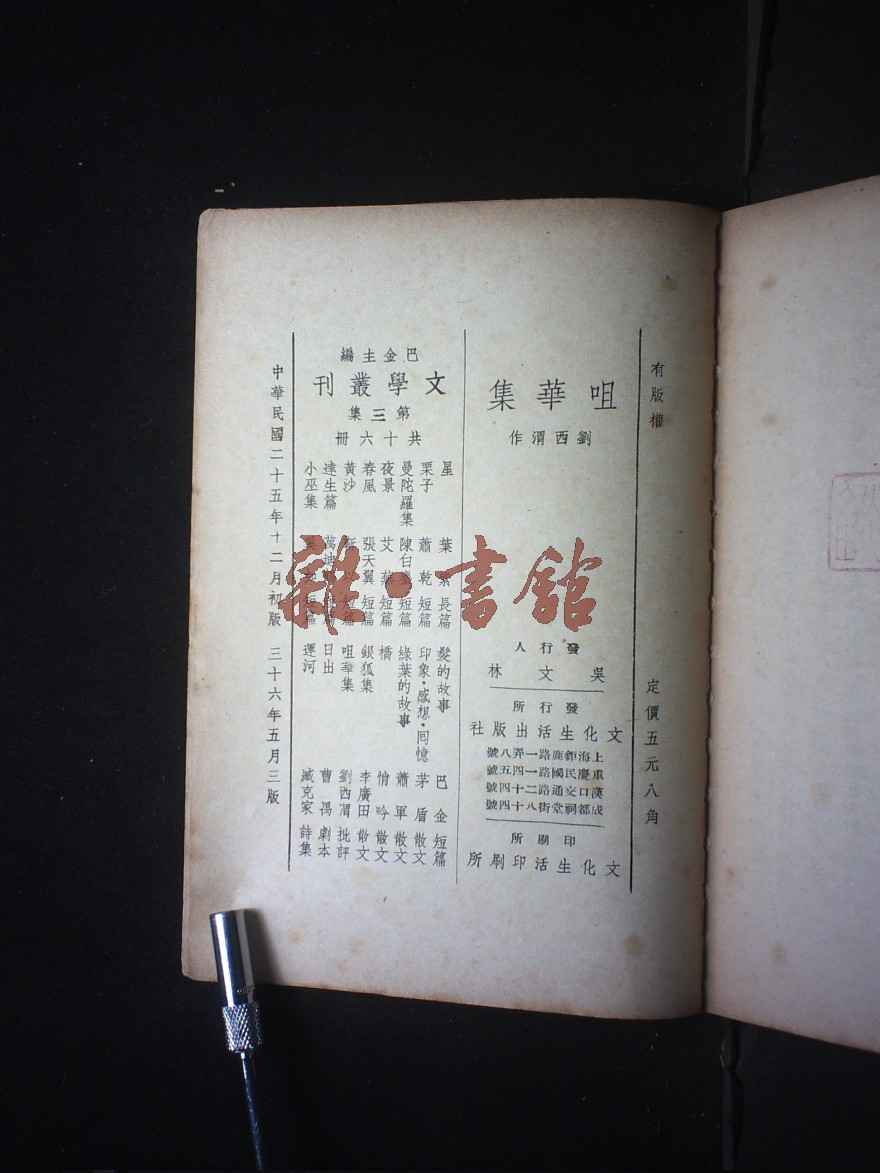 有版權
定價五元八角
咀華集
劉西渭作
發行人
吳文林
發行所
文化生活出版社
上海鉅鹿路一弄八號
重慶民國路一四五號
漢口交通路二十四號
成都祠堂街八十四號
印刷所
文化生活印刷所
巴金主編
文學叢刊
第三集
共十六冊
星 葉紫 長篇
栗子 蕭乾 短篇
曼陀羅集 陳白塵 短篇
夜景 艾蕪 短篇
春風 張天翼 短篇
黃沙 短篇
達生篇 萬迪 短篇
小巫集 短篇
髮的故事 巴金 短篇
印象·感想·回憶 茅盾 散文
綠葉的故事 蕭軍 散文
橋 悄吟 散文
銀狐集 李廣田 散文
咀華集 劉西渭 批評
日出 曹禺 劇本
運河 臧克家 詩集
中華民國二十五年十二月初版 三十六年五月三版
雜·書館